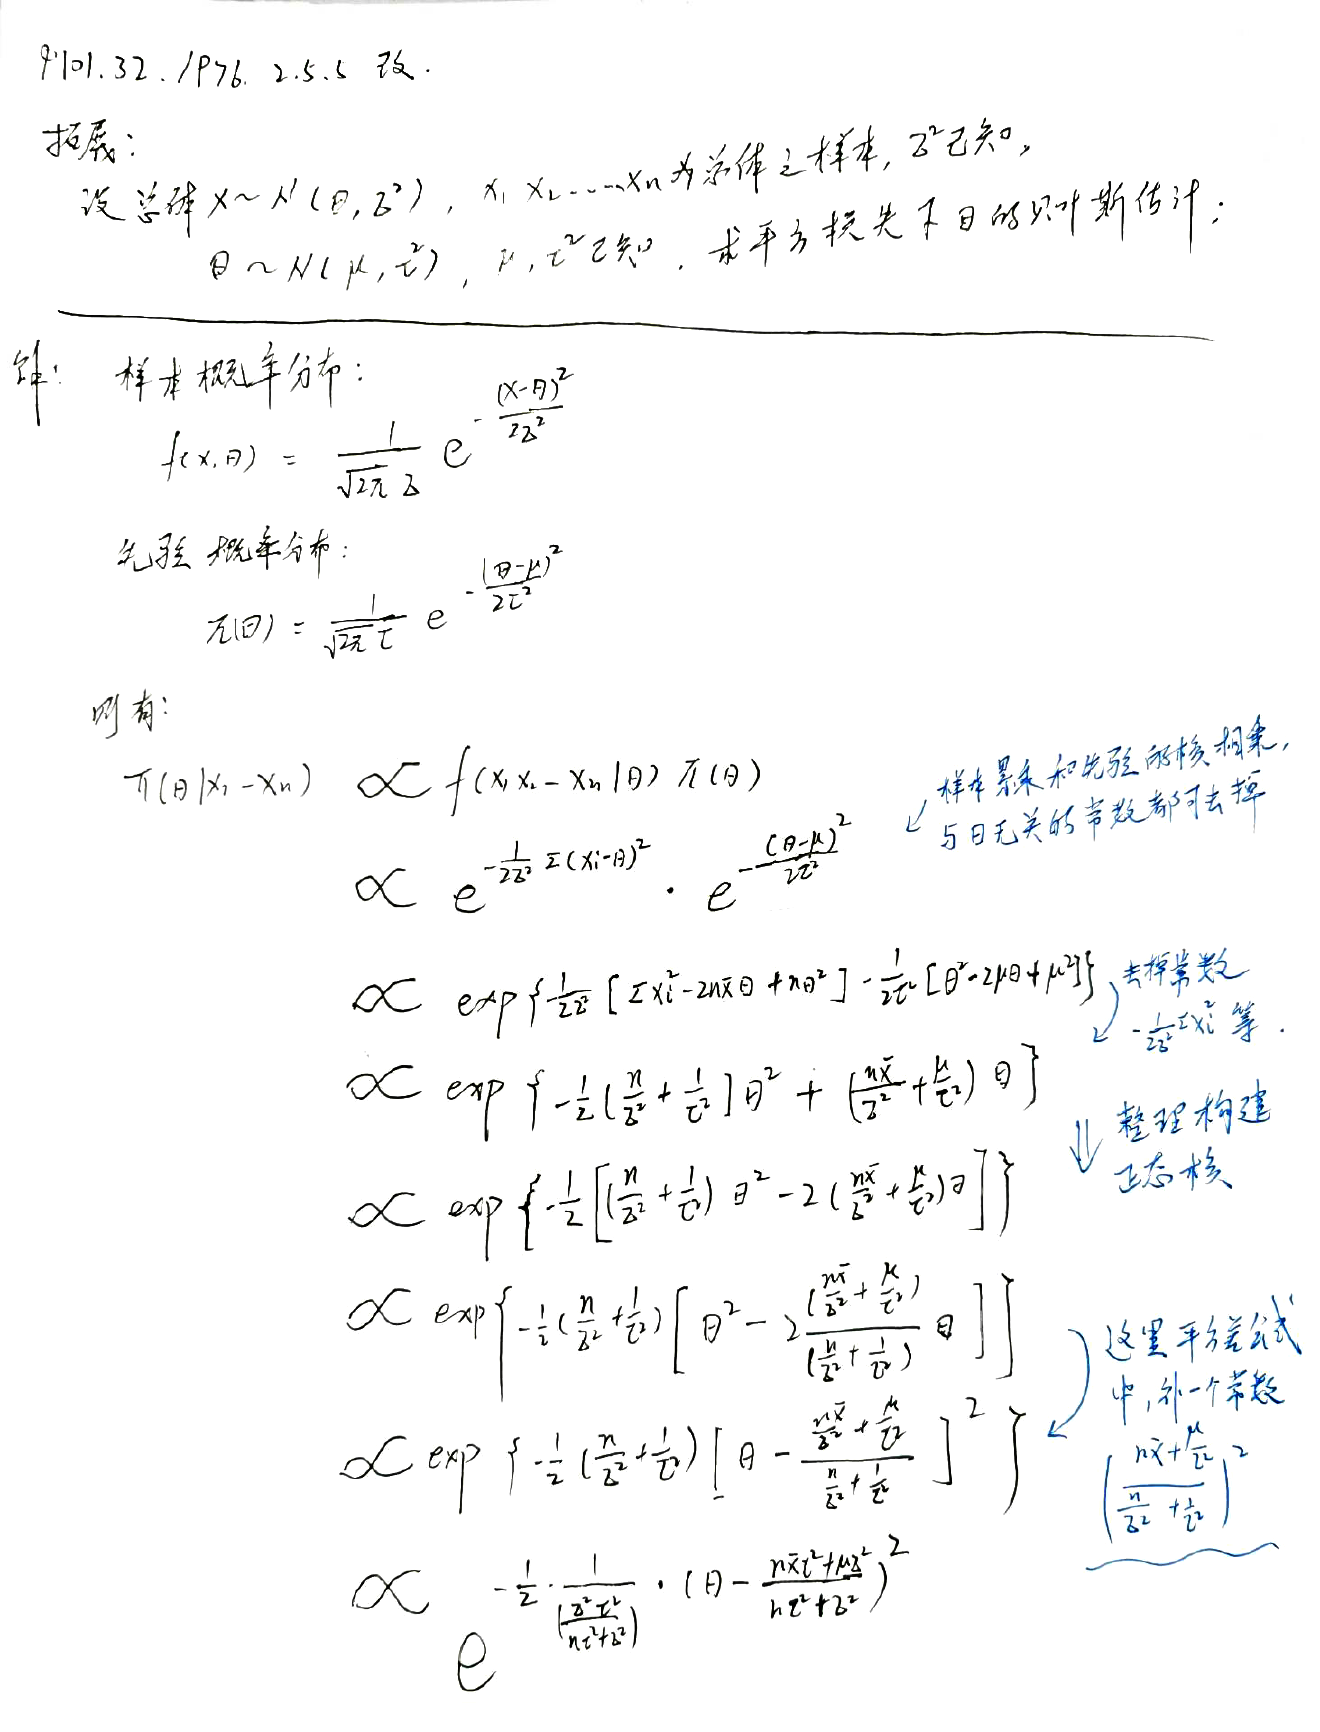 P101.32. 1P76. 2.5.5 改.
拓展:
设总体 X~N(θ,σ²), x₁ x₂……xₙ为总体之样本, σ²已知,
θ~N(μ,τ²), μ,τ²已知. 求平方损失下θ的贝叶斯估计;
解: 样本概率分布:
f(x,θ) = \frac{1}{\sqrt{2π}σ} e^{-\frac{(x-θ)^2}{2σ^2}}
先验概率分布:
π(θ) = \frac{1}{\sqrt{2π}τ} e^{-\frac{(θ-μ)^2}{2τ^2}}
则有:
π(θ|x₁-xₙ) ∝ f(x₁x₂-xₙ|θ) π(θ)
样本累乘和先验的核相乘,
与θ无关的常数都可去掉
∝ e^{-\frac{1}{2σ^2}Σ(xi-θ)^2} · e^{-\frac{(θ-μ)^2}{2τ^2}}
∝ exp{\frac{1}{2σ^2}[Σxi^2-2n\bar{x}θ+nθ^2]-\frac{1}{2τ^2}[θ^2-2μθ+μ^2]}
去掉常数
-\frac{1}{2σ^2}Σxi^2 等.
∝ exp{-\frac{1}{2}(\frac{n}{σ^2}+\frac{1}{τ^2}]θ^2+(\frac{n\bar{x}}{σ^2}+\frac{μ}{τ^2})θ}
⇓ 整理构建
正态核
∝ exp{-\frac{1}{2}[(\frac{n}{σ^2}+\frac{1}{τ^2})θ^2-2(\frac{n\bar{x}}{σ^2}+\frac{μ}{τ^2})θ]}
∝ exp{-\frac{1}{2}(\frac{n}{σ^2}+\frac{1}{τ^2})[θ^2-2\frac{(\frac{n\bar{x}}{σ^2}+\frac{μ}{τ^2})}{(\frac{n}{σ^2}+\frac{1}{τ^2})}θ]}
这里平方差公式
中,补一个常数
(\frac{n\bar{x}+\frac{μ}{τ^2}}{\frac{n}{σ^2}+\frac{1}{τ^2}})^2
∝ exp{-\frac{1}{2}(\frac{n}{σ^2}+\frac{1}{τ^2})[θ-\frac{\frac{n\bar{x}}{σ^2}+\frac{μ}{τ^2}}{\frac{n}{σ^2}+\frac{1}{τ^2}}]^2}
∝ e^{-\frac{1}{2}·\frac{1}{(\frac{σ^2τ^2}{nτ^2+σ^2})}·(θ-\frac{n\bar{x}τ^2+μσ^2}{nτ^2+σ^2})^2}